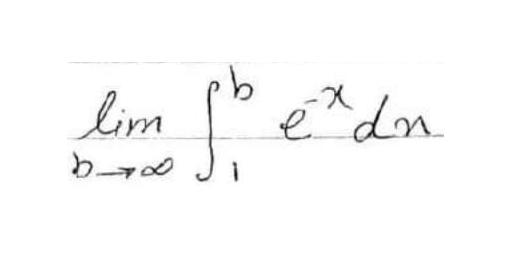 lim ∫₁ᵇ e⁻ˣ dx
b→∞